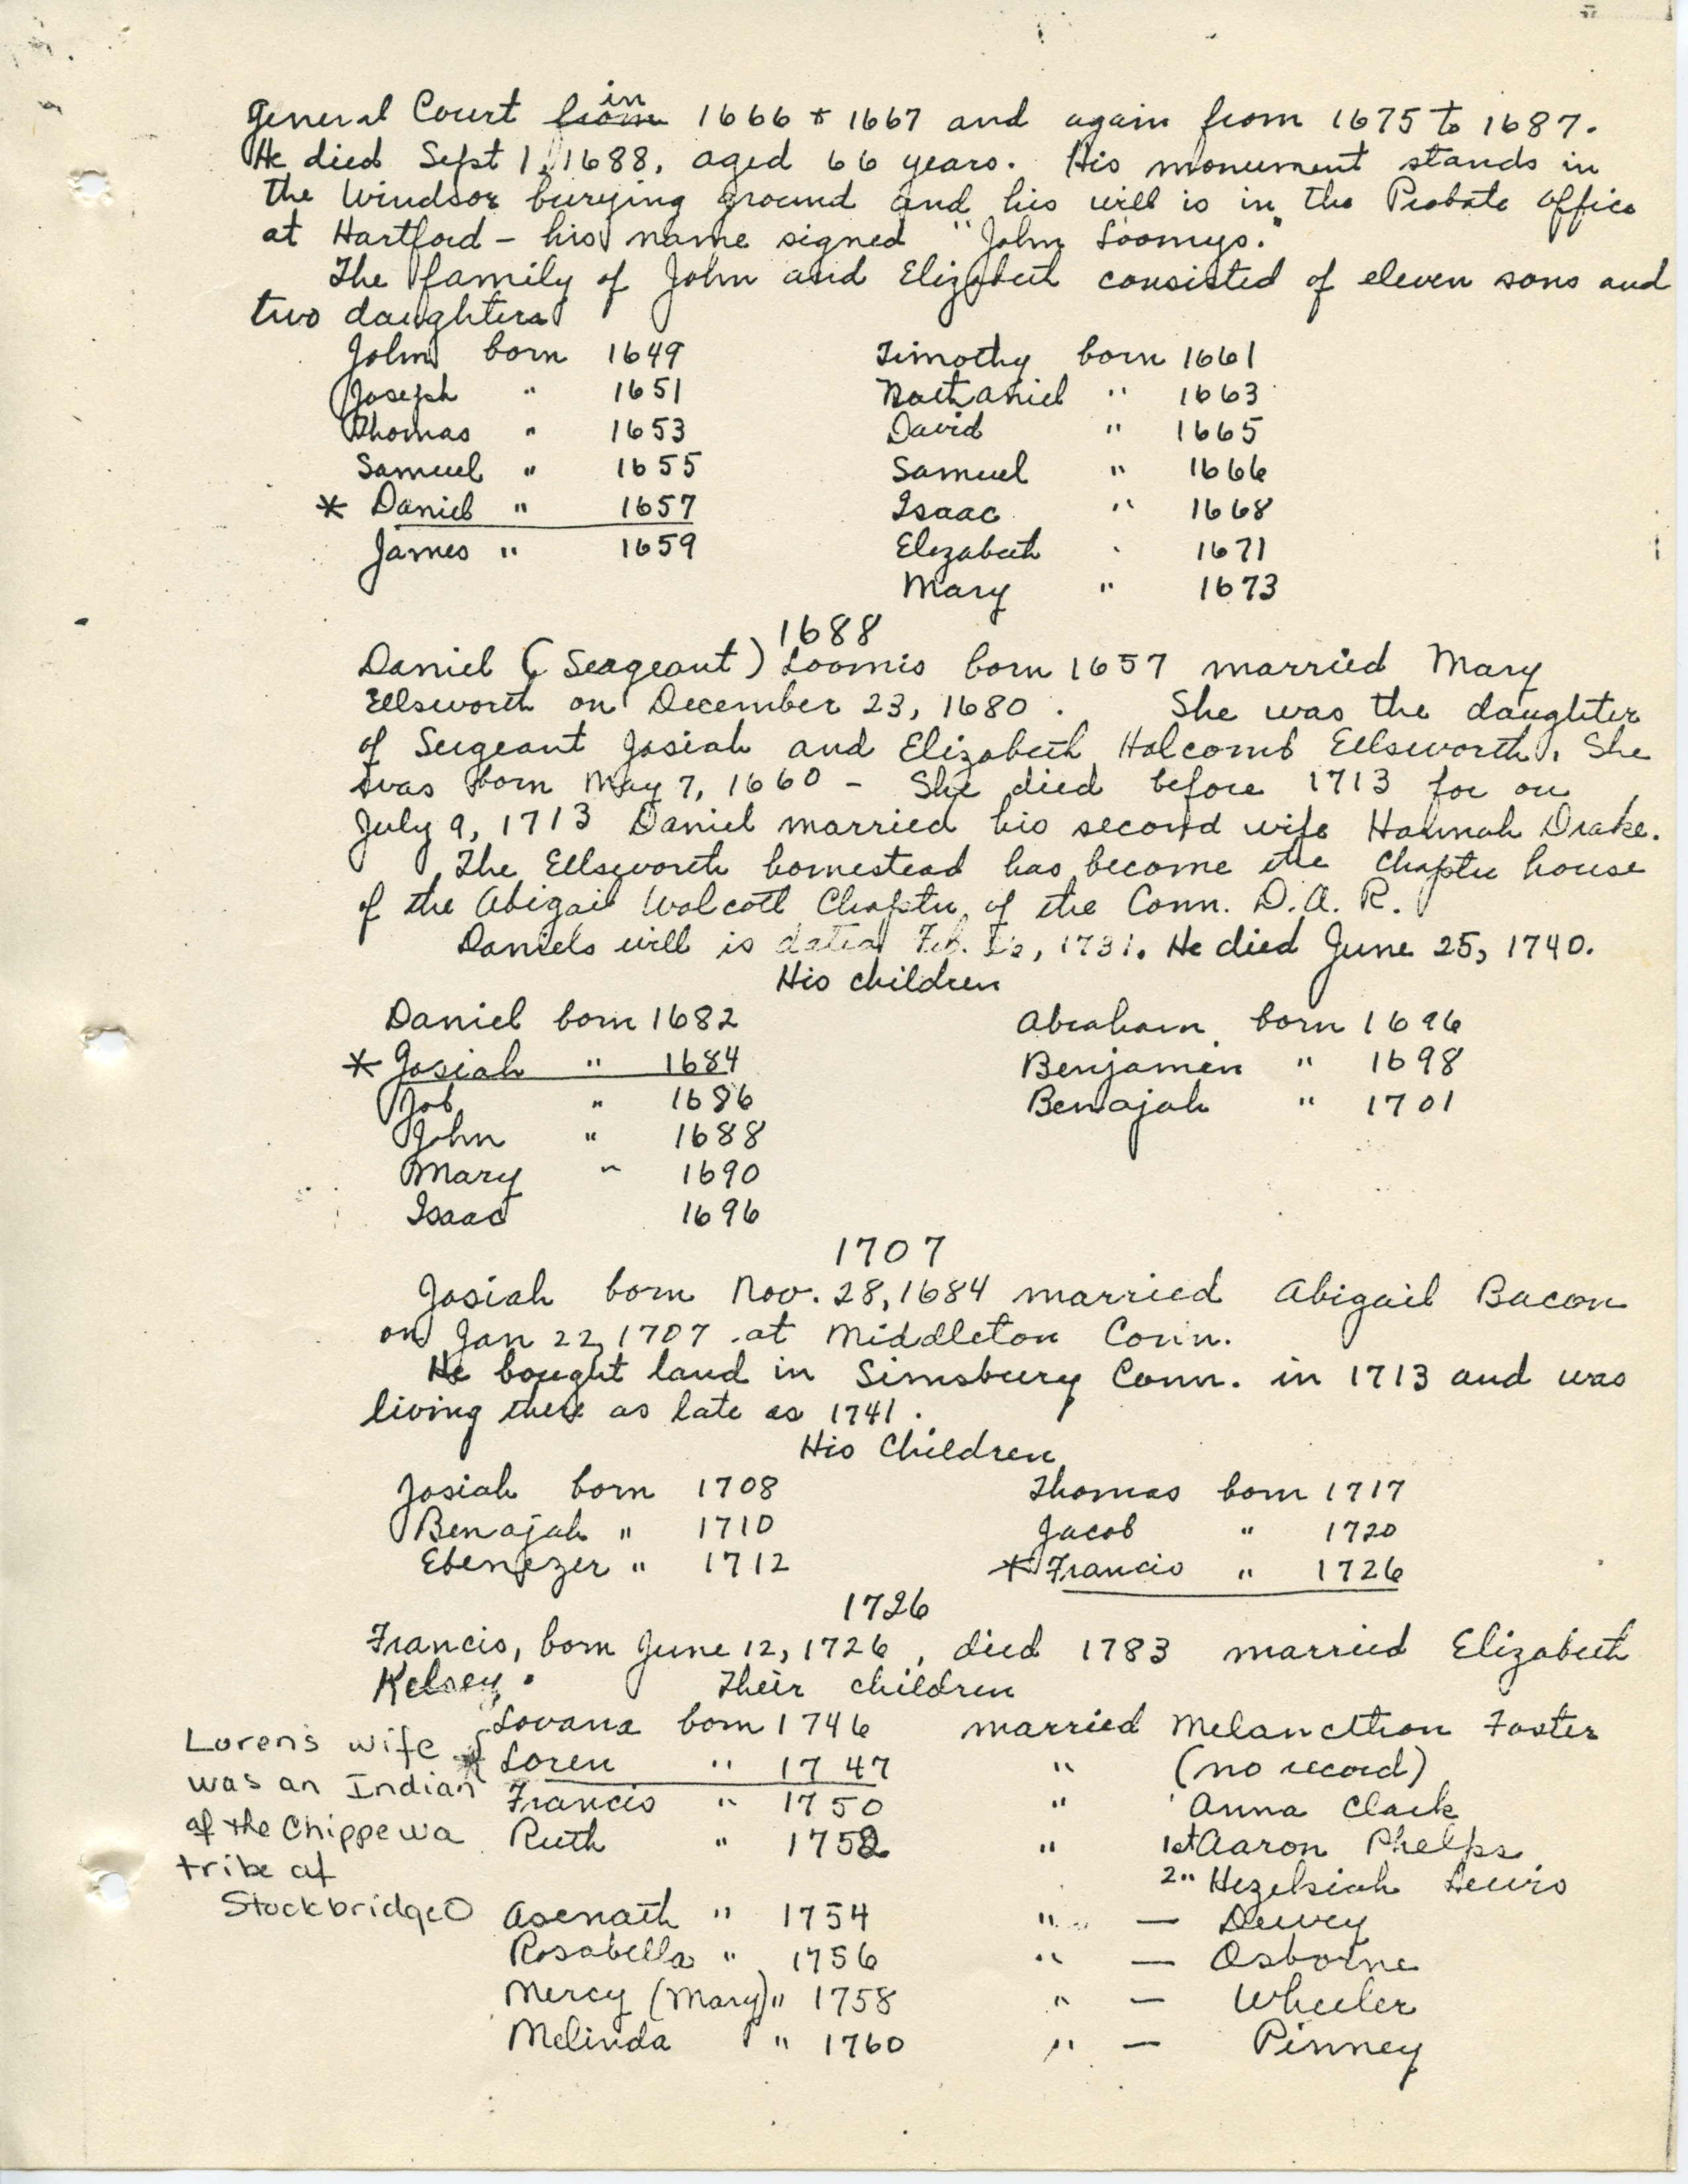 General Court from in 1666 + 1667 and again from 1675 to 1687.
He died Sept 1, 1688, aged 66 years. His monument stands in
the Windsor burying ground and his will is in the Probate office
at Hartford - his name signed "John Loomys."
The family of John and Elizabeth consisted of eleven sons and
two daughters
John born 1649 Timothy born 1661
Joseph " 1651 Nathaniel " 1663
Thomas " 1653 David " 1665
Samuel " 1655 Samuel " 1666
* Daniel " 1657 Isaac " 1668
James " 1659 Elizabeth " 1671
Mary " 1673
1688
Daniel (Seageant) Loomis born 1657 married Mary
Ellsworth on December 23, 1680. She was the daughter
of Sergeant Josiah and Elizabeth Holcomb Ellsworth. She
was born May 7, 1660 - She died before 1713 for on
July 9, 1713 Daniel married his second wife Hannah Drake.
The Ellsworth homestead has become the Chapter house
of the Abigail Wolcott Chapter of the Conn. D.A.R.
Daniels will is dated Feb. 1731. He died June 25, 1740.
His children
Daniel born 1682 Abraham born 1696
* Josiah " 1684 Benjamin " 1698
Job " 1686 Benajah " 1701
John " 1688
Mary " 1690
Isaac 1696
1707
Josiah born Nov. 28, 1684 married Abigail Bacon
on Jan 22, 1707 at Middleton Conn.
He bought land in Simsbury Conn. in 1713 and was
living there as late as 1741.
His Children
Josiah born 1708 Thomas born 1717
Benajah " 1710 Jacob " 1720
Ebenezer " 1712 * Francis " 1726
1726
Francis, born June 12, 1726, died 1783 married Elizabeth
Kelsey. Their children
Lovana born 1746 married Melancthon Foster
Loren " 1747 " (no record)
Francis " 1750 " Anna Clark
Ruth " 1752 " 1st Aaron Phelps
2" Hezekiah Lewis
Asenath " 1754 " — Dewey
Rosabella " 1756 " — Osborne
Mercy (Mary) " 1758 " — Wheeler
Melinda " 1760 " — Pinney
Loren's wife
was an Indian
of the Chippewa
tribe at
Stockbridge